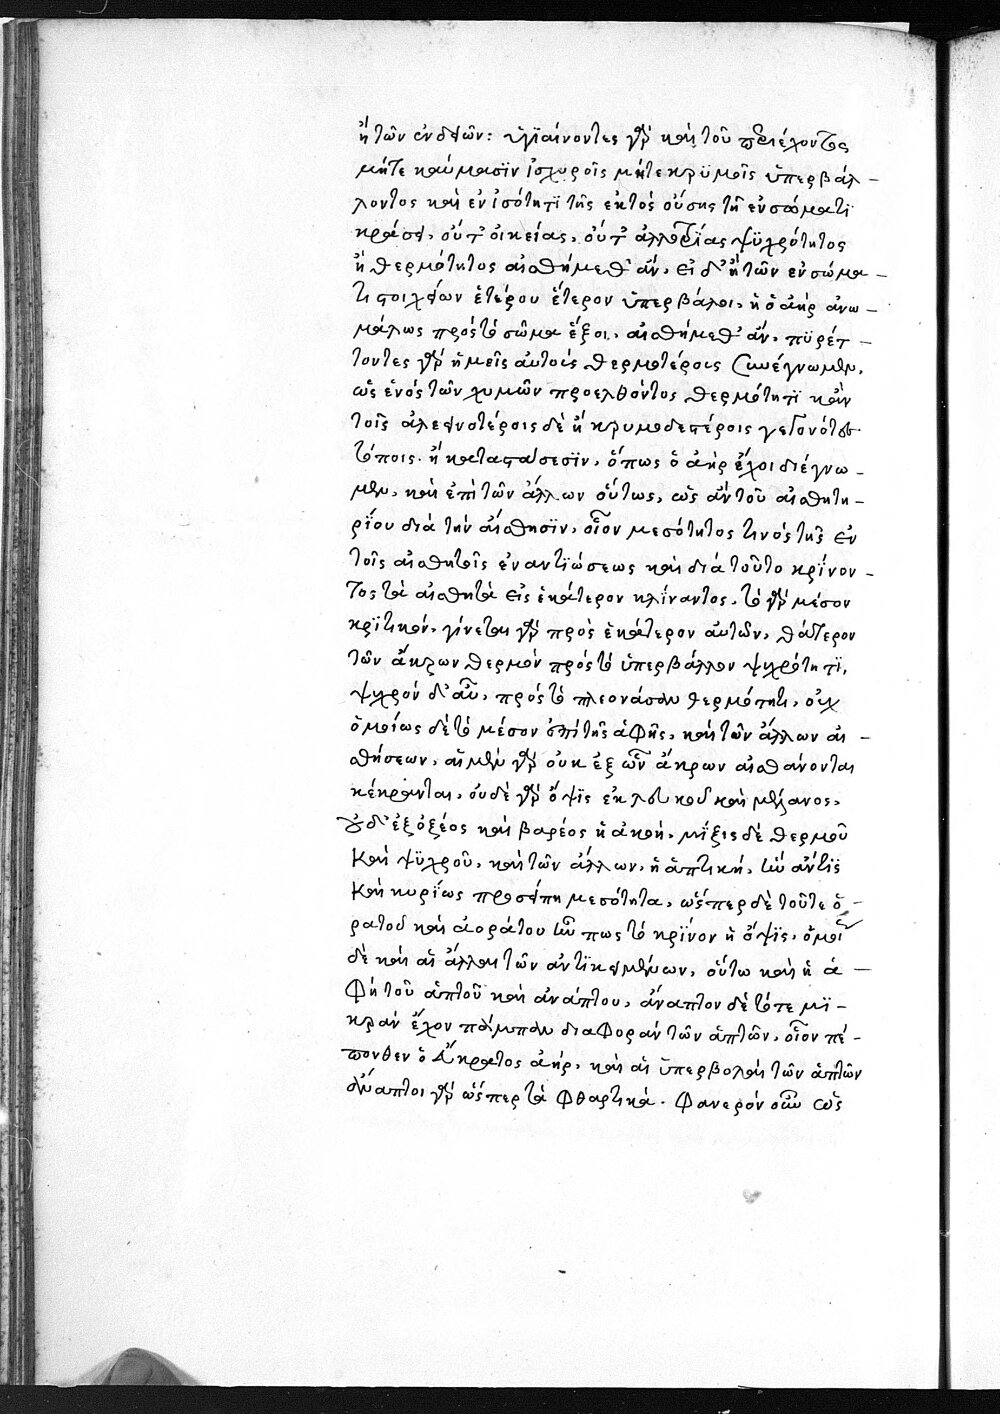 ἢ τῶν ἐνδεῶν: ὑγϊαίνοντες γὰρ καὶ τοῦ περιέχοντος
μήτε καύμασϊν ἰσχυροῖς μήτε κρϋμοῖς ὑπερβάλ-
λοντος καὶ ἐν ἰσότητϊ τῆς ἐκτὸς οὔσης τῆ ἐν σώματϊ
κράσει, οὔτ' οἰκείας, οὔτ' ἀλλοτρΐας ψϋχρότητος
ἢ θερμότητος αἰσθήμεθ' ἄν, εἰ δ' ἢ τῶν ἐν σώμα-
τι στοιχείων ἑτέρου ἕτερον ὑπερβάλοι, ἢ ὁ ἀὴρ ἀνω-
μάλως πρὸς τὸ σῶμα ἕξοι, αἰσθήμεθ' ἄν, πϋρέτ-
τοντες γὰρ ἡμεῖς αὐτοὶς θερμοτέροις συνέγνωμεν,
ὡς ἑνὸς τῶν χυμῶν προελθόντος θερμότητϊ κἀν
τοῖς ἀλεεινοτέροις δὲ ἢ κρυμωδεστέροις γεγονότες
τόποις ἢ καταστάσεσϊν, ὅπως ὁ ἀὴρ ἔχοι διέγνω-
μεν, καὶ ἐπὶ τῶν ἄλλων οὕτως, ὡς ἂν τοῦ αἰσθητη-
ρΐου διὰ τὴν αἴσθησϊν, οἷον μεσότητος τινὸς τῆς ἐν
τοῖς αἰσθητοῖς ἐναντϊώσεως καὶ διὰ τοῦτο κρίνον-
τος τὰ αἰσθητὰ εἰς ἑκάτερον κλίναντος, τὸ γὰρ μέσον
κρϊτικόν, γίνεται γὰρ πρὸς ἑκάτερον αὐτῶν, θάτερον
τῶν ἄκρων θερμὸν πρὸς τὸ ὑπερβάλλον ψυχρότητϊ,
ψυχρὸν δ' αὖ, πρὸς τὸ πλεονάσαν θερμότητι, οὐχ
ὁμοίως δὲ τὸ μέσον ἐπὶ τῆς ἁφῆς, καὶ τῶν ἄλλων αἰ-
σθήσεων, αἱ μὲν γὰρ οὐκ ἐξ ὧν ἄκρων αἰσθάνονται
κέκρανται, οὐδὲ γὰρ ὄψϊς ἐκ λευκοῦ καὶ μέλανος,
οὐδ' ἐξ ὀξέος καὶ βαρέος ἡ ἀκοή, μίξις δὲ θερμοῦ
καὶ ψϋχροῦ, καὶ τῶν ἄλλων, ἡ ἁπτική, ἣν ἄν τϊς
καὶ κυρΐως προσείπη μεσότητα, ὥσπερ δὲ τοῦτε ὁ-
ρατοῦ καὶ ἀοράτου ἦν πως τὸ κρῖνον ἡ ὄψϊς, ὅμοι
δὲ καὶ αἱ ἄλλαι τῶν ἀντϊκειμένων, οὕτω καὶ ἡ ἁ-
φὴ τοῦ ἁπτοῦ καὶ ἀνάπτου, ἄναπτον δὲ τότε μϊ-
κρὰν ἔχον πάμπαν διαφορὰν τῶν ἁπτῶν, οἷον πέ-
πονθεν ὁ ἄκρατος ἀήρ, καὶ αἱ ὑπερβολαὶ τῶν ἁπτῶν
ἄναπτοι γὰρ ὥσπερ τὰ φθαρτικά. Φανερὸν οὖν ὡς